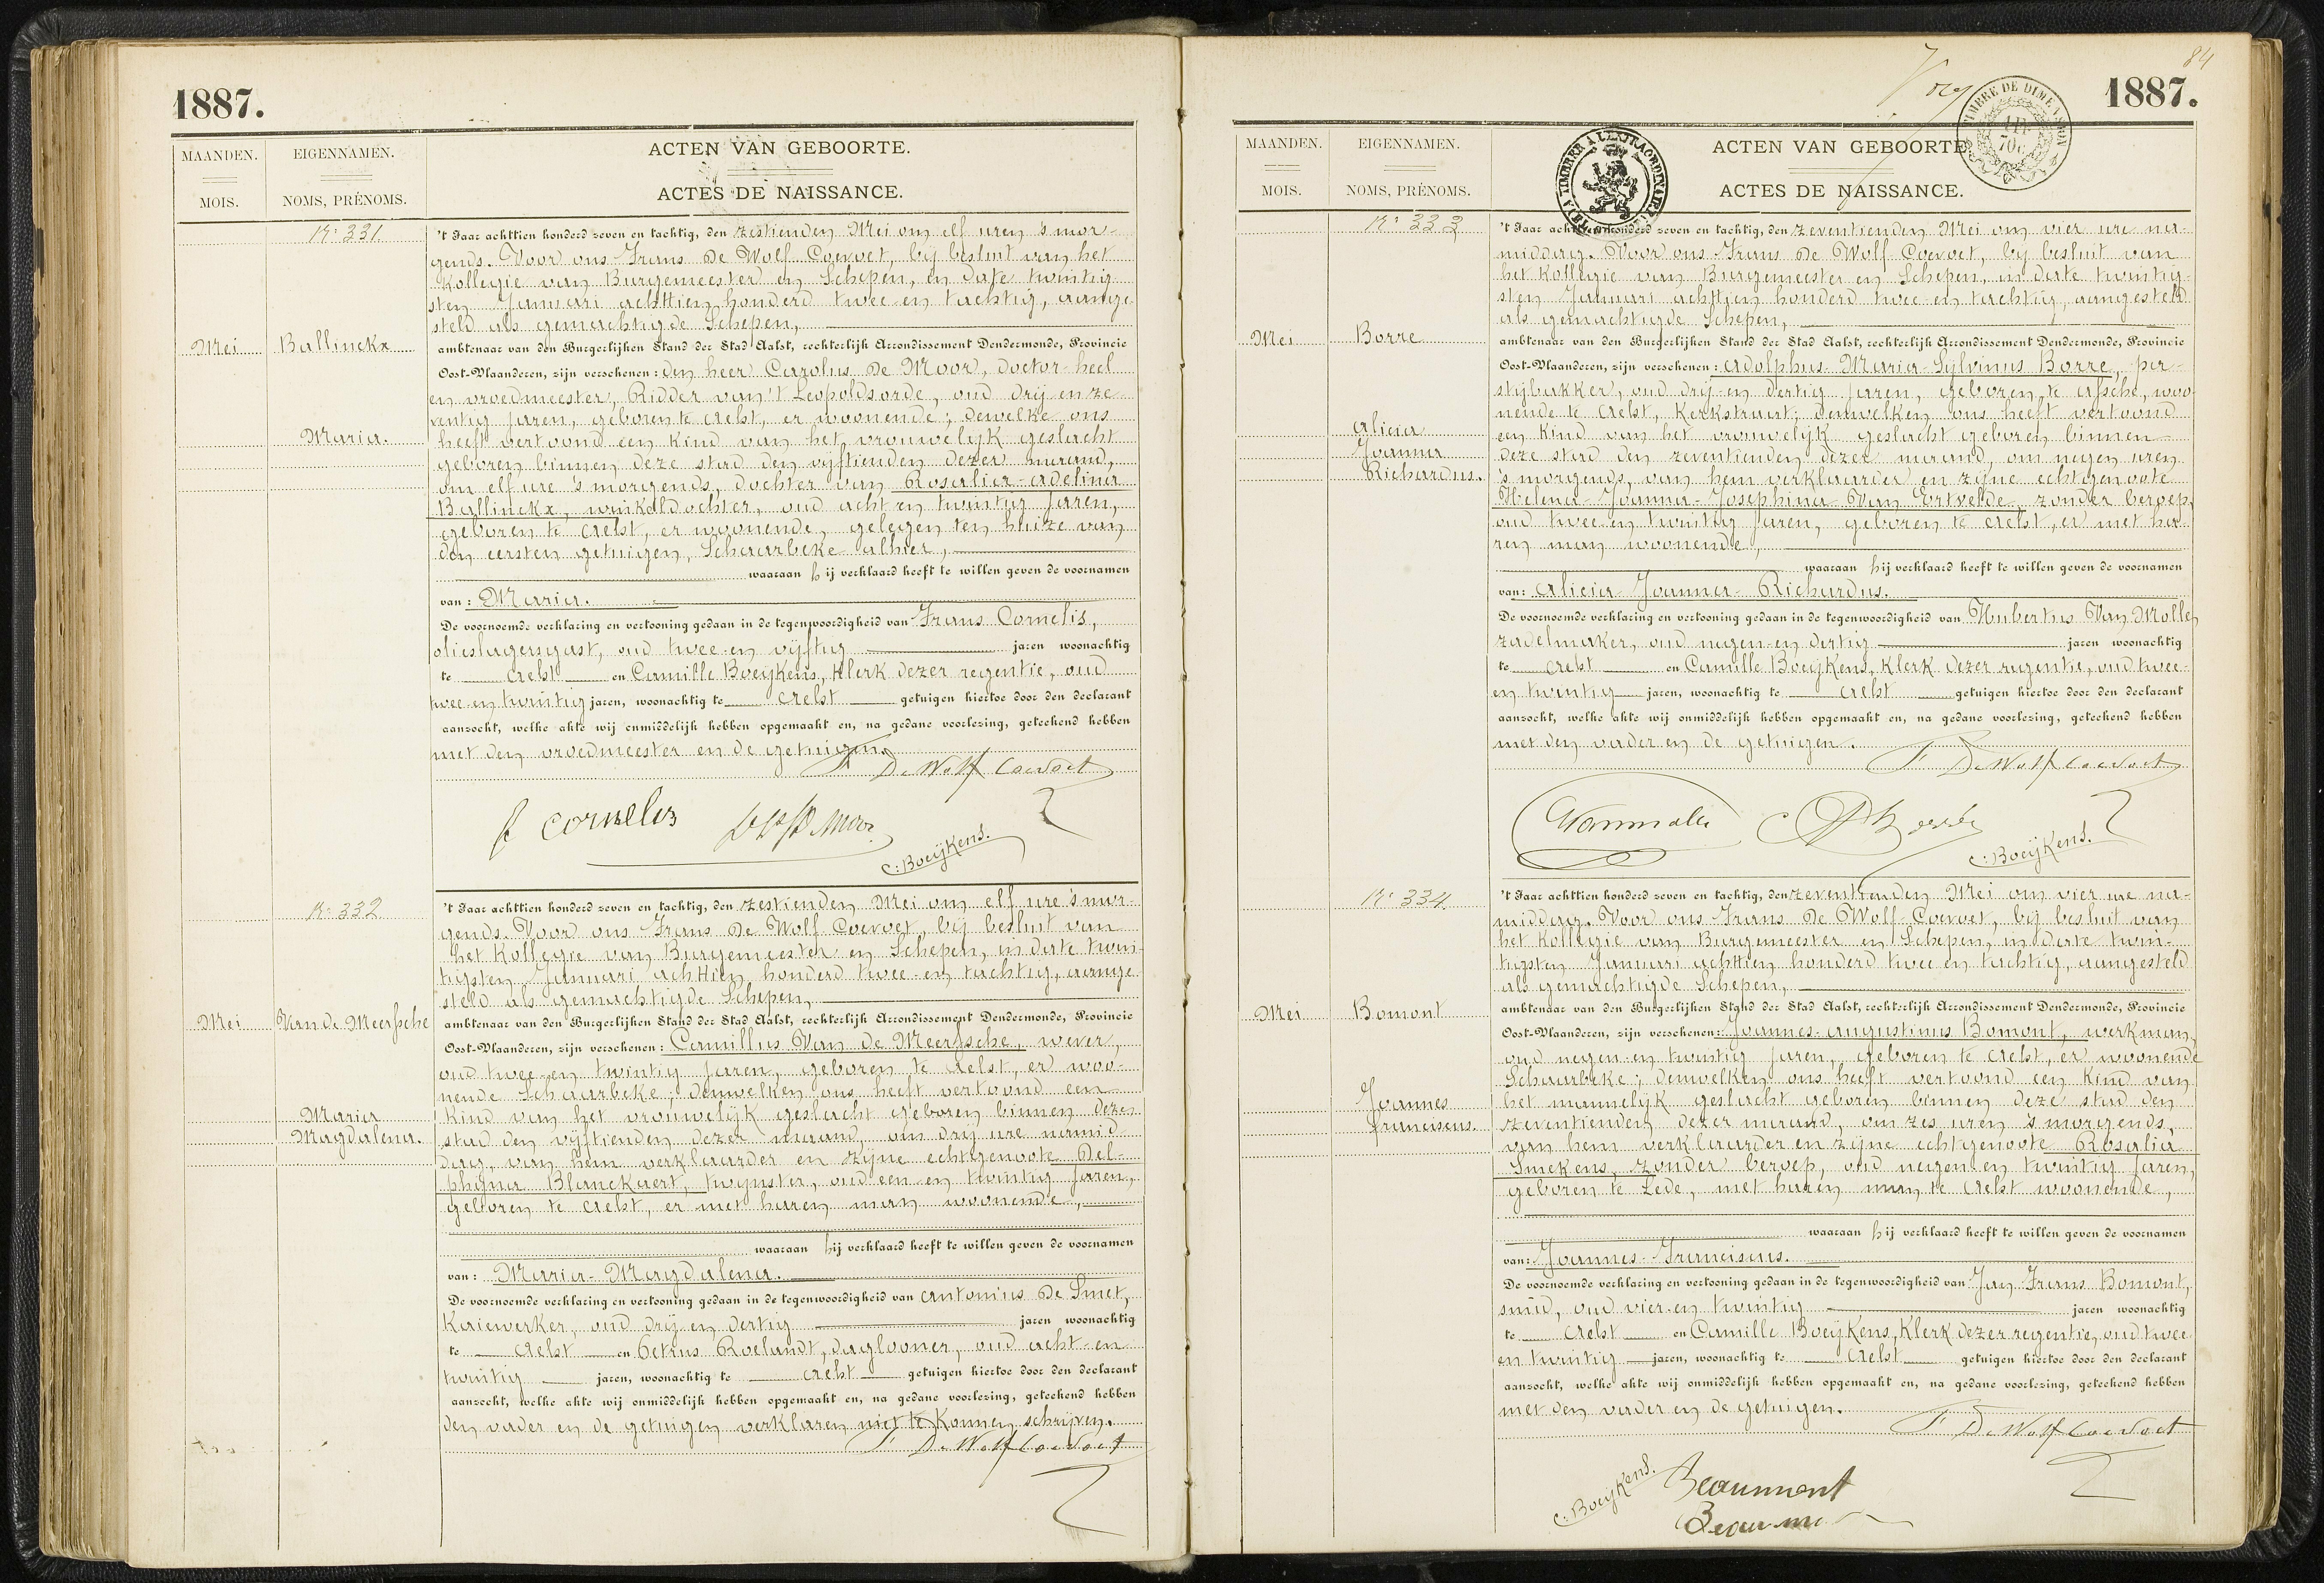 1887.
MAANDEN.
MOIS.
EIGENNAMEN.
NOMS, PRÉNOMS.
ACTEN VAN GEBOORTE.
ACTES DE NAISSANCE.
N: 331.
Mei
Ballinckx
Maria.
't Jaar achttien honderd zeven en tachtig, den zestienden Mei om elf uren 's mor-
gends. Voor ons Frans De Wolf Coevoet, bij besluit van het
Kollegie van Burgemeester en Schepen, in date twintig-
sten Januari achttien honderd twee en tachtig, aange-
steld als gemachtigde Schepen,
ambtenaar van den Burgerlijken Stand der Stad Aalst, rechterlijk Arrondissement Dendermonde, Provincie
Oost-Vlaanderen, zijn verschenen: den heer Carolus De Moor, doctor heel
en vroedmeester, Ridder van 't Leopoldsorde, oud drij en ze-
ventig jaren, geboren te Aelst, er woonende; dewelke ons
heeft vertoond een kind van het vrouwelijk geslacht
geboren binnen deze stad den vijftienden dezer maand,
om elf ure 's morgends, dochter van Rosalia-Adelina
Ballinckx, winkeldochter, oud acht en twintig jaren,
geboren te Aelst, er woonende, gelegen ten huize van
den eersten getuigen, Schaarbeke alhier,
waaraan hij verklaard heeft te willen geven de voornamen
van: Maria.
De voornoemde verklaring en vertooning gedaan in de tegenwoordigheid van Frans Cornelis,
olieslagersgast, oud twee en vijftig jaren woonachtig
te Aelst en Camille Boeijkens, klerk dezer regentie, oud
twee en twintig jaren, woonachtig te Aelst getuigen hiertoe door den declarant
aanzocht, welke akte wij onmiddelijk hebben opgemaakt en, na gedane voorlezing, geteekend hebben
met den vroedmeester en de getuigen.
F De Wolf Coevoet
f cornelis
C: Boeijkens.
N: 332
Mei
Van de Meerssche
Maria
Magdalena.
't Jaar achttien honderd zeven en tachtig, den zestienden Mei om elf ure 's mor-
gends. Voor ons Frans De Wolf Coevoet, bij besluit van
het Kollegie van Burgemeester en Schepen, in date twin-
tigsten Januari achttien honderd twee en tachtig, aange-
steld als gemachtigde Schepen,
ambtenaar van den Burgerlijken Stand der Stad Aalst, rechterlijk Arrondissement Dendermonde, Provincie
Oost-Vlaanderen, zijn verschenen: Camillus Van de Meerssche, wever,
oud twee en twintig jaren, geboren te Aelst, er woo-
nende Schaarbeke; denwelken ons heeft vertoond een
kind van het vrouwelijk geslacht geboren binnen deze
stad den vijftienden dezer maand, om drij ure namid-
dag, van hem verklaarder en zijne echtgenoote Del-
phina Blanckaert, twijnster, oud een en twintig jaren,
geboren te Aelst, er met haren man woonende,
waaraan hij verklaard heeft te willen geven de voornamen
van: Maria-Magdalena.
De voornoemde verklaring en vertooning gedaan in de tegenwoordigheid van Antonius De Smet,
Kaiewerker, oud drij en dertig jaren woonachtig
te Aelst en Petrus Roelandt, daglooner, oud acht en
twintig jaren, woonachtig te Aelst getuigen hiertoe door den declarant
aanzocht, welke akte wij onmiddelijk hebben opgemaakt en, na gedane voorlezing, geteekend hebben
den vader en de getuigen verklaren niet te konnen schrijven.
F De Wolf Coevoet
84
1887.
TIMBRE DE DIMENSION
1 F
70 c
A TIMBRER A L'EXTRAORDINAIRE
MAANDEN.
MOIS.
EIGENNAMEN.
NOMS, PRÉNOMS.
ACTEN VAN GEBOORTE
ACTES DE NAISSANCE.
N: 333
Mei
Borre
Alicia
Joanna
Richardus.
't Jaar achttien honderd zeven en tachtig, den zeventienden Mei om vier ure na-
middag. Voor ons Frans De Wolf Coevoet, bij besluit van
het Kollegie van Burgemeester en Schepen, in date twintig-
sten Januari achttien honderd twee en tachtig, aangesteld
als gemachtigde Schepen,
ambtenaar van den Burgerlijken Stand der Stad Aalst, rechterlijk Arrondissement Dendermonde, Provincie
Oost-Vlaanderen, zijn verschenen: Adolphus-Maria-Sylvinus Borre, pas-
tijbakker, oud drij en dertig jaren, geboren te Assche, woo-
nende te Aelst, Kerkstraat; denwelken ons heeft vertoond
een kind van het vrouwelijk geslacht geboren binnen
deze stad den zeventienden dezer maand, om negen uren
's morgends, van hem verklaarder en zijne echtgenoote
Helena-Joanna-Josephina Van Ertvelde, zonder beroep,
oud twee en twintig jaren, geboren te Aelst, er met ha-
ren man woonende,
waaraan hij verklaard heeft te willen geven de voornamen
van: Alicia-Joanna-Richardus.
De voornoemde verklaring en vertooning gedaan in de tegenwoordigheid van Hubertus Van Molle,
zadelmaker, oud negen en dertig jaren woonachtig
te Aelst en Camille Boeijkens, klerk dezer regentie, oud twee-
en twintig jaren, woonachtig te Aelst getuigen hiertoe door den declarant
aanzocht, welke akte wij onmiddelijk hebben opgemaakt en, na gedane voorlezing, geteekend hebben
met den vader en de getuigen.
F De Wolf Coevoet
C: Boeijkens.
N: 334.
Mei
Bomont
Joannes
Franciscus.
't Jaar achttien honderd zeven en tachtig, den zeventienden Mei om vier ure na-
middag. Voor ons Frans De Wolf Coevoet, bij besluit van
het Kollegie van Burgemeester en Schepen, in date twin-
tigsten Januari achttien honderd twee en tachtig, aangesteld
als gemachtigde Schepen,
ambtenaar van den Burgerlijken Stand der Stad Aalst, rechterlijk Arrondissement Dendermonde, Provincie
Oost-Vlaanderen, zijn verschenen: Joannes-Augustinus Bomont, werkman,
oud negen en twintig jaren, geboren te Aelst, er woonende
Schaarbeke; denwelken ons heeft vertoond een kind van
het mannelijk geslacht geboren binnen deze stad den
zeventienden dezer maand, om zes uren 's morgends,
van hem verklaarder en zijne echtgenoote Rosalia
Smekens, zonder beroep, oud negen en twintig jaren,
geboren te Lede, met haren man te Aelst woonende,
waaraan hij verklaard heeft te willen geven de voornamen
van: Joannes-Franciscus.
De voornoemde verklaring en vertooning gedaan in de tegenwoordigheid van Jan Frans Bomont,
smid, oud vier en twintig jaren woonachtig
te Aelst en Camille Boeijkens, klerk dezer regentie, oud twee
en twintig jaren, woonachtig te Aelst getuigen hiertoe door den declarant
aanzocht, welke akte wij onmiddelijk hebben opgemaakt en, na gedane voorlezing, geteekend hebben
met den vader en de getuigen.
F De Wolf Coevoet
C: Boeijkens.
Beaumont